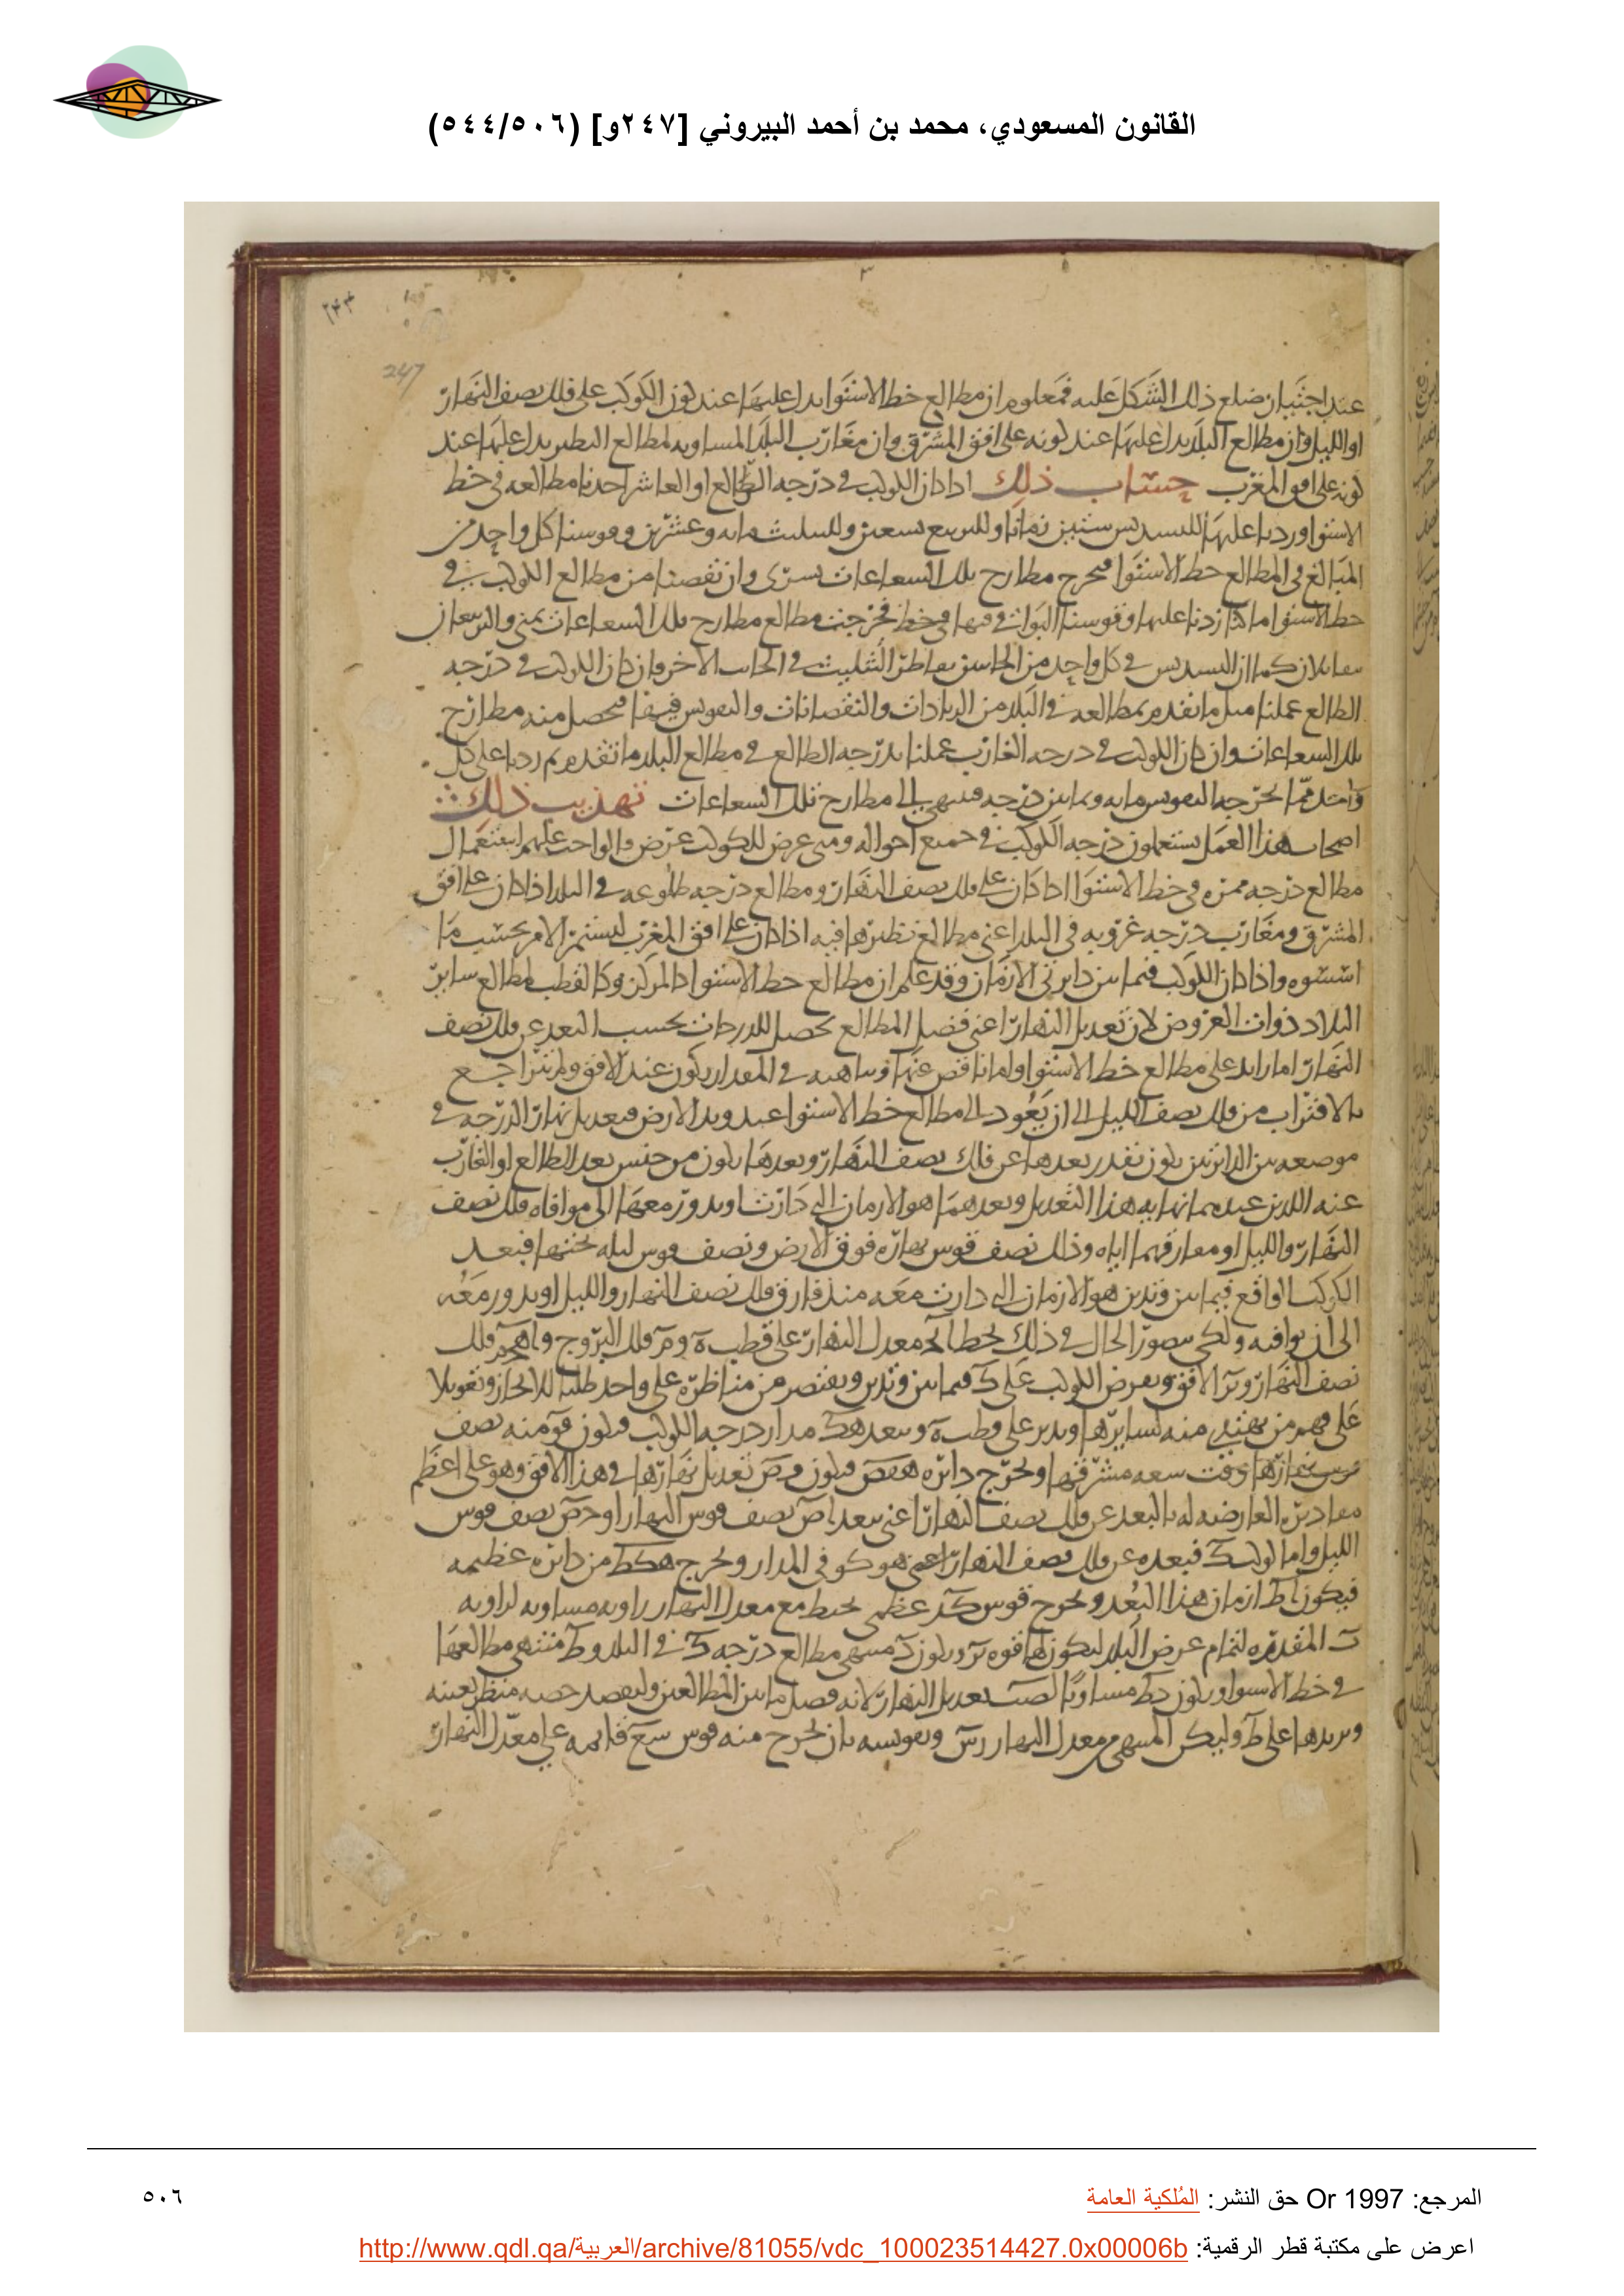 القانون المسعودي، محمد بن أحمد البيروني [٢٤٧و] (٥٠٦/٥٤٤)
٢٤٣
247
عند اجتياز ضلع ذلك الشكل عليه فمعلوم ان مطالع خط الاستوا يدل عليها عند كون الكوكب على فلك نصف النهار
او الليل وان مطالع البلد يدل عليها عند كونه على افق المشرق وان مغارب البلد المساويه لمطالع النظير يدل عليها عند
كونه على افق المغرب حساب ذلك اذا كان الكوكب في درجه الطالع او العاشر اخذنا مطالعه في خط
الاستوا وزدنا عليها للتسديس ستين زمانا وللتربيع تسعين وللتثليث مايه وعشرين وقوسنا كل واحد من
المبالغ في المطالع خط الاستوا فتخرج مطارح تلك الشعاعات يسرى وان نقصنا من مطالع الكوكب في
خط الاستوا ما زدنا عليها وقوسنا البواقي فيها في خط فخرجت مطالع مطارح تلك الشعاعات يمنى والتربيعان
متقابلان كما ان التسديس في كل واحد من الجانبين يناظر التثليث في الجانب الاخر وان كان الكوكب في درجه
الطالع عملنا مثل ما تقدم بمطالعه في البلد من الزيادات والنقصانات والتقويس فيها فتحصل منه مطارح
تلك الشعاعات وان كان الكوكب في درجه الغارب عملنا بدرجه الطالع في مطالع البلد ما تقدم ثم زدنا على كل
واحد مما اخرجه التقويس مايه وثمانين درجه فينتهي الى مطارح تلك الشعاعات تهذيب ذلك
اصحاب هذا العمل يستعملون درجه الكوكب في جميع احواله ومتى عرض للكوكب عرض فالواجب عليهم استعمال
مطالع درجه ممره في خط الاستوا اذا كان على فلك نصف النهار ومطالع درجه طلوعه في البلد اذا كان على افق
المشرق ومغارب درجه غروبه في البلد اعني مطالع نظيرها فيه اذا كان على افق المغرب ليستمر الامر بحسب ما
اسسوه واذا كان الكوكب فيما بين دايرتي الازمان وقد علم ان مطالع خط الاستوا كالمركز وكالقطب لمطالع ساير
البلاد ذوات العروض لان تعديل النهار اعني فضل المطالع تحصل للدرجات بحسب البعد عن فلك نصف
النهار اما زايد على مطالع خط الاستوا واما ناقص عنها وتناهيه في المقدار يكون عند الافق ثم يتراجع
بالاقتراب من فلك نصف الليل الى ان يعود الى مطالع خط الاستوا عند وتد الارض فتعديل نهار الدرجه في
موضعه بين الدايرتين يكون بقدر بعدها عن فلك نصف النهار وبعدها يكون من جنس بعد الطالع او الغارب
عنه اللذين عندهما نهايه هذا التعديل وبعدهما هو الازمان التي دارت او تدور معها الى موافاه فلك نصف
النهار والليل او مفارقتهما اياه وذلك نصف قوس نهاره فوق الارض ونصف قوس ليله تحتها فبعد
الكوكب الواقع فيما بين وتدين هو الازمان التي دارت معه منذ فارق فلك نصف النهار والليل او تدور معه
الى ان يوافيه ولكي يتصور الحال في ذلك نخط معدل النهار على قطب ه فلك البروج و فلك
نصف النهار و الافق ونفرض الكوكب على ك فيما بين وتدين ونقتصر من مناظره على واحد طلبا للايجاز وتعويلا
على فهم من يهتدي منه لسايرها وندير على قطب ه وببعد هك مدار درجه الكوكب فيكون منه نصف
قوس نهارها وقت سعه مشرقها ونخرج دايره فيكون تعديل نهارها في هذا الافق وهو على اعظم
مقاديره العارضه له بالبعد عن فلك نصف النهار اعني ببعد نصف قوس النهار او نصف قوس
الليل واما كوكب ك فبعده عن فلك نصف النهار اعني هو في المدار ونخرج هكط من دايره عظيمه
فيكون اط ازمان هذا البعد ونخرج قوس عظمى تحيط مع معدل النهار زاويه مساويه لزاويه
المقدره لتمام عرض البلد ليكون ويكون منتهى مطالع درجه ك في البلد و ط منتهى مطالعها
في خط الاستوا ويكون مساويا لنصب تعديل النهار لانه فضل ما بين المطالعين وليقصد حصه منظر بعينه
ونزيدها على ط وليكن المنتهى من معدل النهار وتقويسه بان نخرج منه قوس قايمه على معدل النهار
المرجع: Or 1997 حق النشر: المُلكية العامة
٥٠٦
اعرض على مكتبة قطر الرقمية: http://www.qdl.qa/العربية/archive/81055/vdc_100023514427.0x00006b